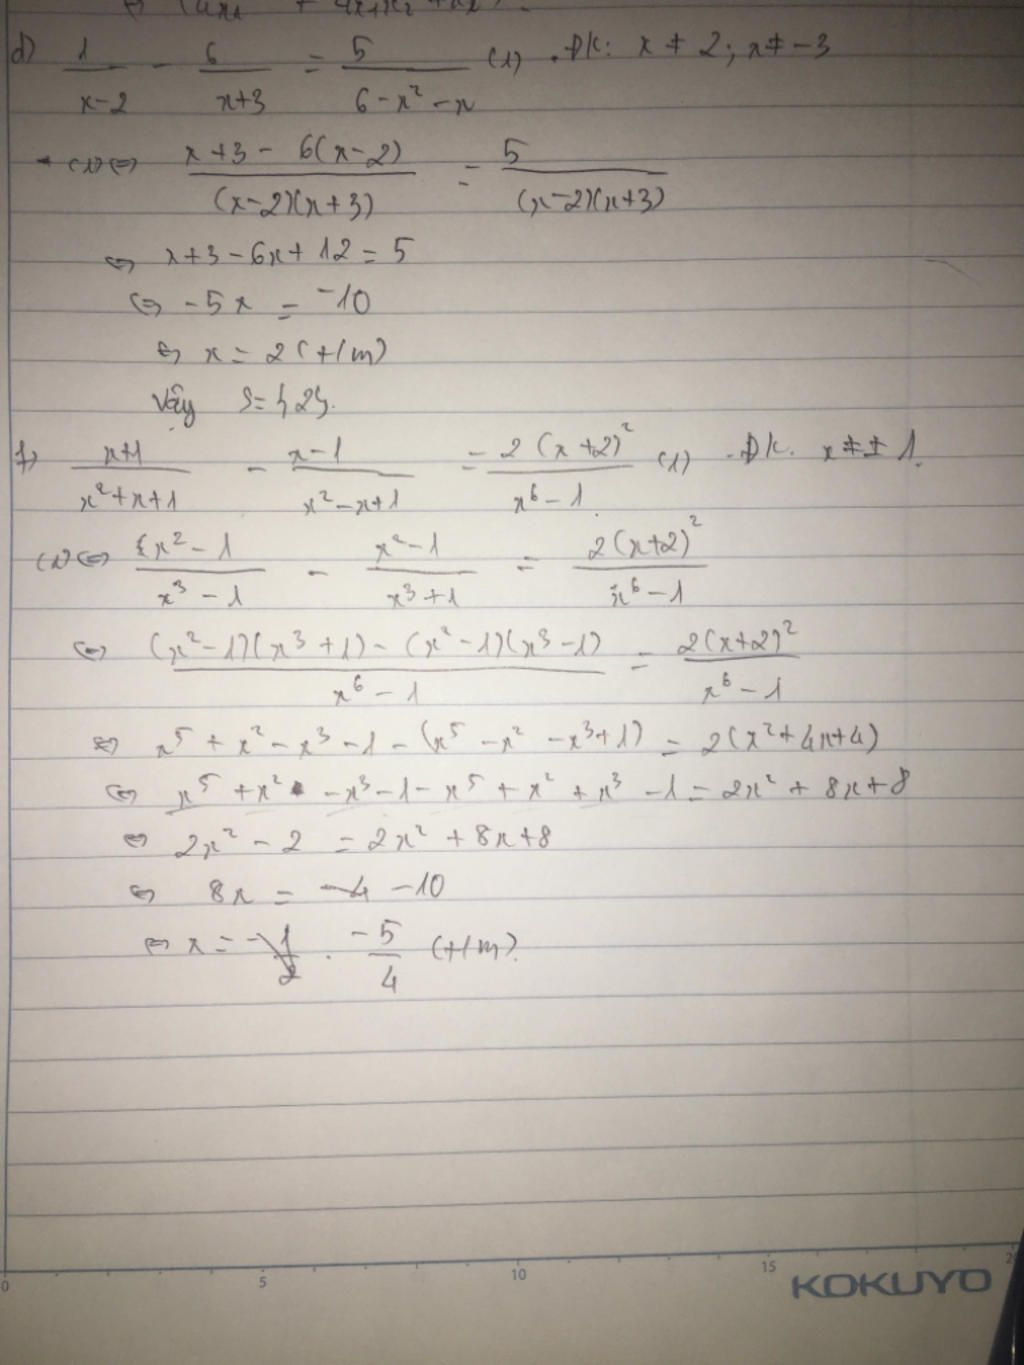 d) 1/(x-2) - 6/(x+3) = 5/(6-x²-x) (1) . ĐK: x ≠ 2; x ≠ -3
(1) ⇔ (x+3 - 6(x-2))/((x-2)(x+3)) = 5/((x-2)(x+3))
⇔ x+3-6x+12 = 5
⇔ -5x = -10
⇔ x = 2 (t/m)
Vậy S={2}.
f) (x+1)/(x²+x+1) - (x-1)/(x²-x+1) = 2(x+2)²/(x⁶-1) (1) . ĐK. x ≠ ± 1.
(1) ⇔ (x²-1)/(x³-1) - (x²-1)/(x³+1) = 2(x+2)²/(x⁶-1)
⇔ ((x²-1)(x³+1) - (x²-1)(x³-1))/(x⁶-1) = 2(x+2)²/(x⁶-1)
⇔ x⁵ + x² - x³ - 1 - (x⁵ - x² - x³+1) = 2(x²+4x+4)
⇔ x⁵ + x² - x³ - 1 - x⁵ + x² + x³ - 1 = 2x² + 8x+8
⇔ 2x² - 2 = 2x² + 8x+8
⇔ 8x = -10
⇔ x = -5/4 (t/m).
0 5 10 15
KOKUYO